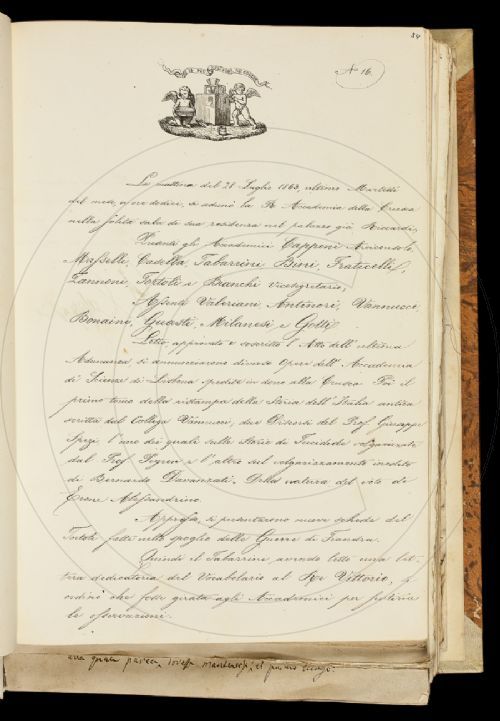 84
N 16.
La mattina del 28 Luglio 1863, ultimo Martedì
del mese, a ore dodici, si adunò la R. Accademia della Crusca
nella solita sala di sua residenza nel palazzo già Riccardi.
Presenti gli Accademici Capponi Arciconsolo,
Masselli, Casella, Tabarrini, Bini, Fraticelli,
Zannoni, Tortoli e Bianchi Vicesegretario;
Assenti Valeriani, Antinori, Vannucci,
Bonaini, Guasti, Milanesi e Gotti.
Letto, approvato e soscritto l'Atto dell'ultima
Adunanza, si annunciarono diverse Opere dell'Accademia
di Scienze di Lisbona spedite in dono alla Crusca. Più il
primo tomo della ristampa della Storia dell'Italia antica
scritta dal Collega Vannucci; due Discorsi del Prof. Giuseppe
Spezi l'uno dei quali sulle Storie di Tucidide volgarizzate
dal Prof. Peyron e l'altro sul volgarizzamento inedito
di Bernardo Davanzati. Della natura del voto di
Erone Alessandrino.
Appresso, si presentarono nuove schede del
Tortoli fatte nello spoglio delle Guerre di Fiandra.
Quindi il Tabarrini, avendo letto una let-
tera dedicatoria del Vocabolario al Re Vittorio, si
ordinò che fosse girata agli Accademici per farvi
le osservazioni.